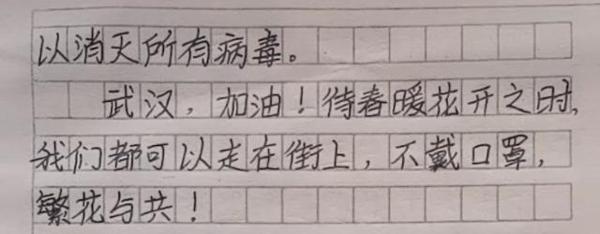 以消灭所有病毒。
武汉，加油！待春暖花开之时，
我们都可以走在街上，不戴口罩，
繁花与共！